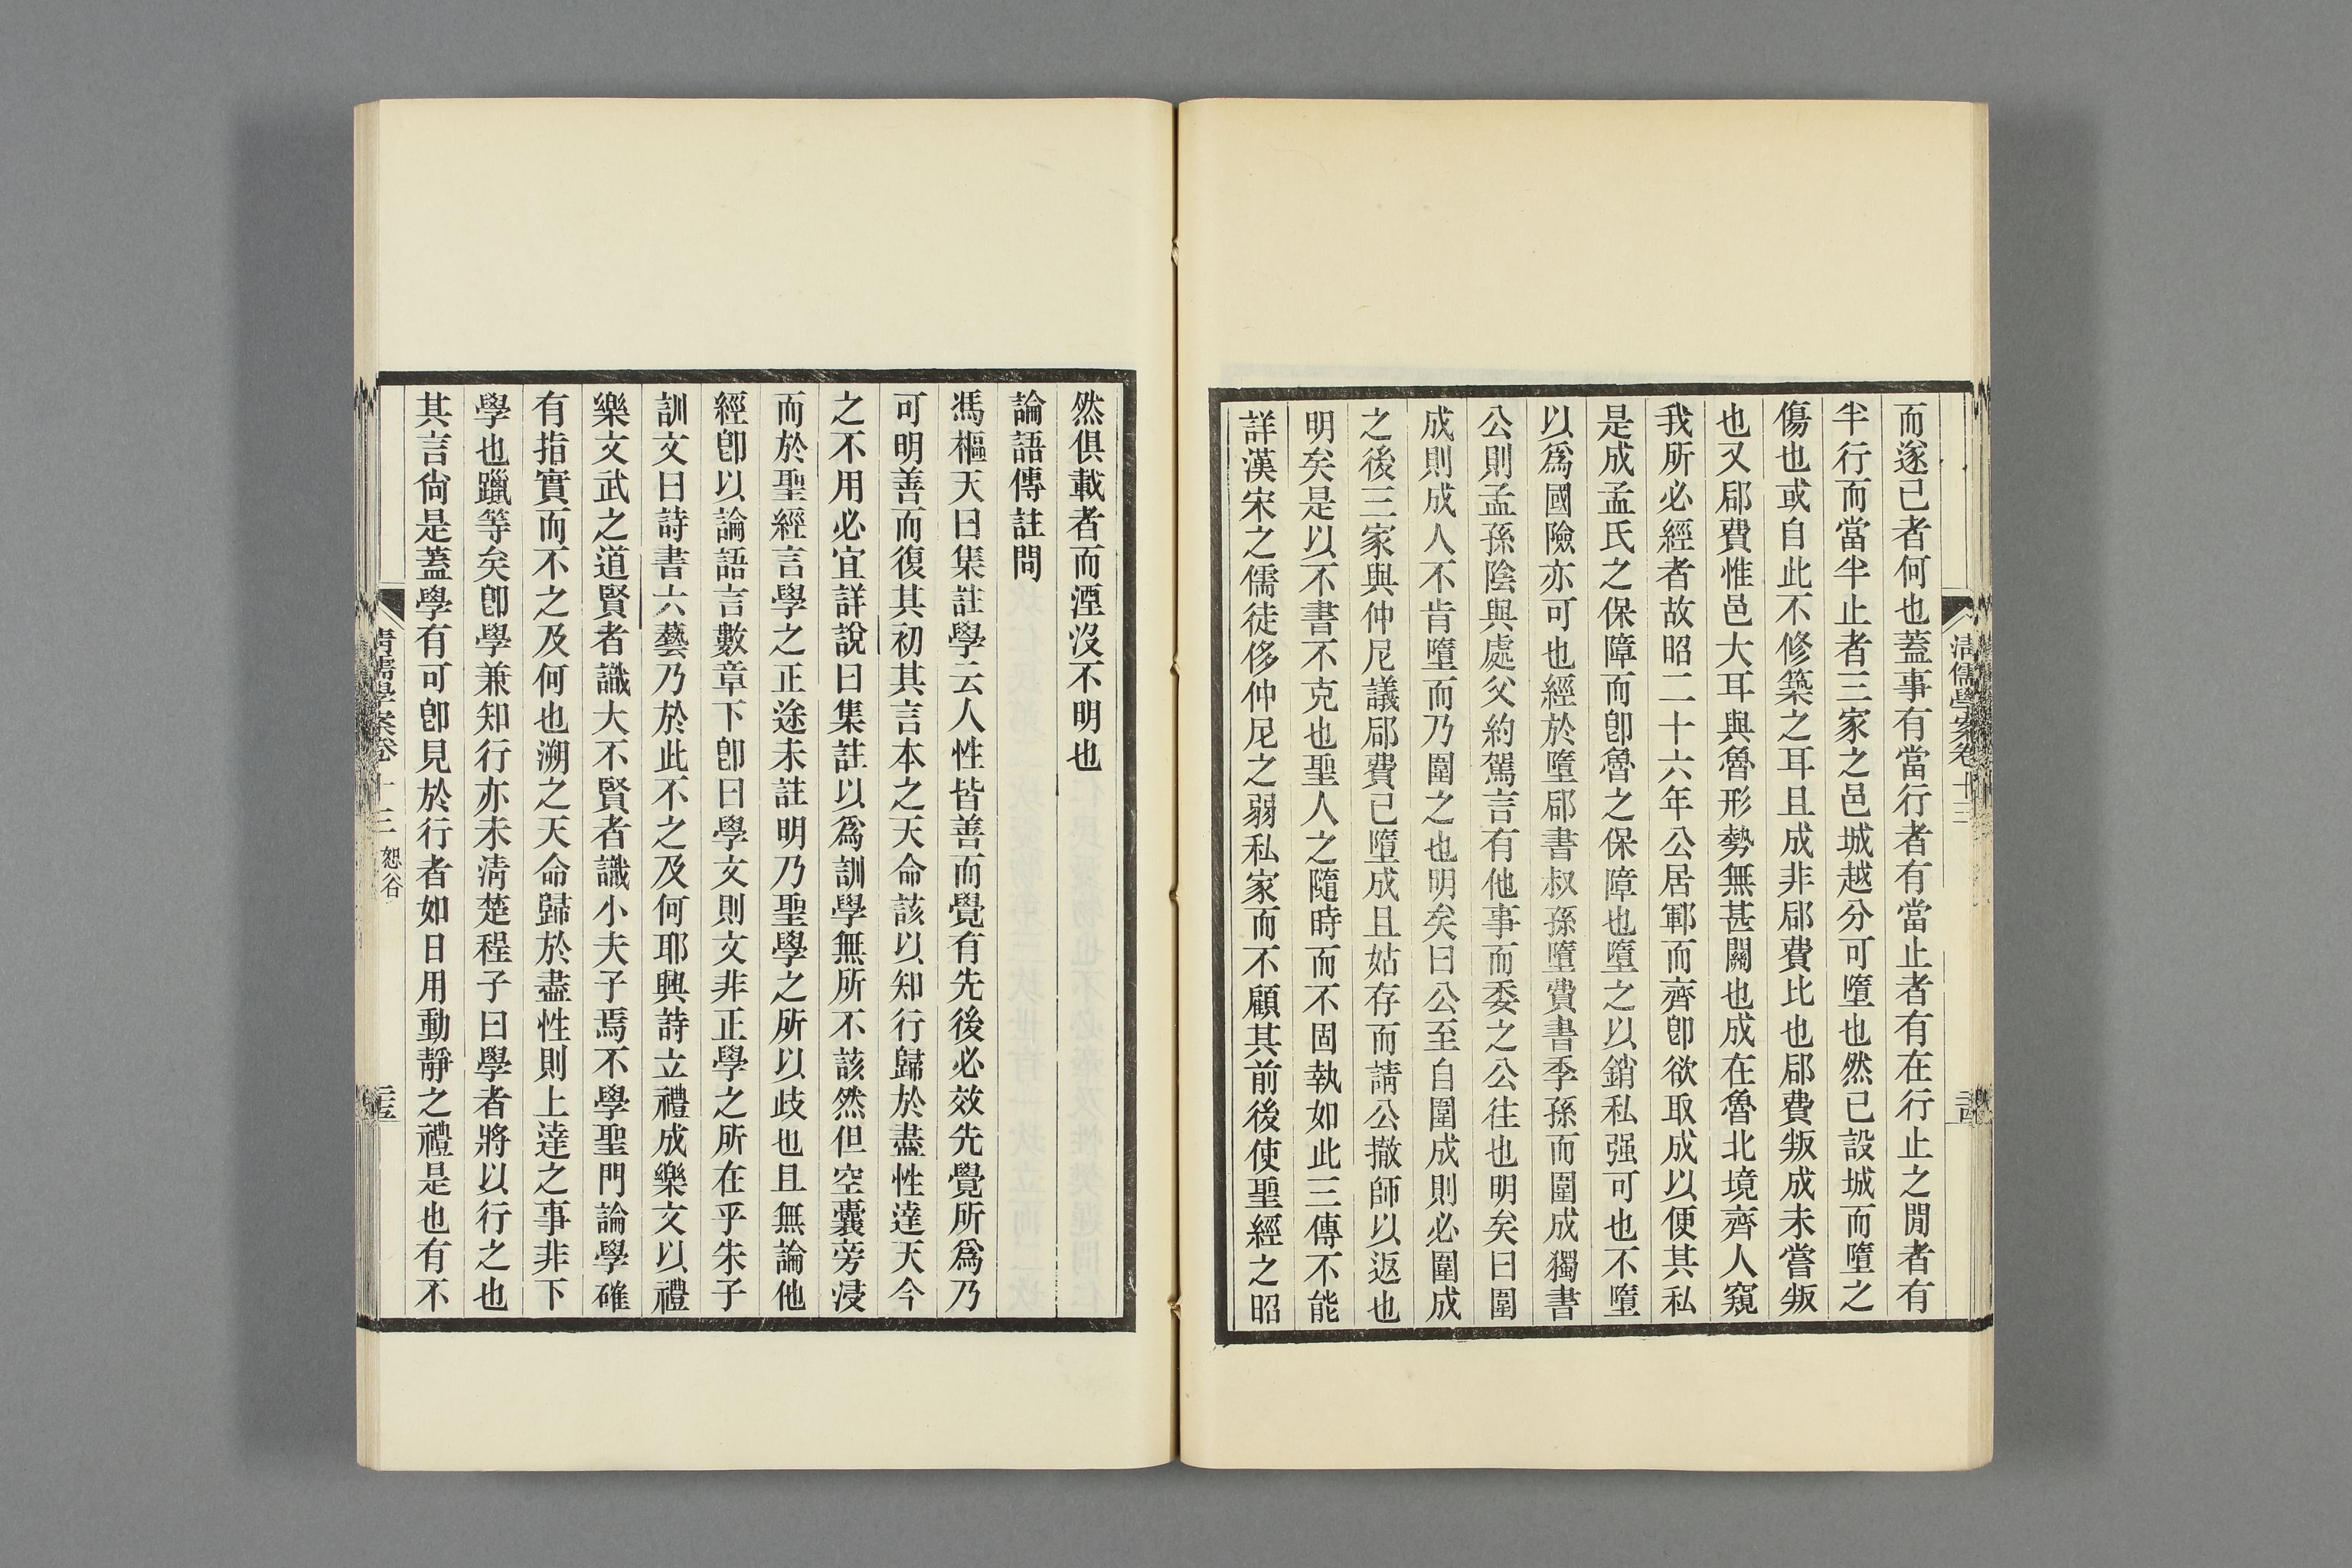 清儒學案卷十三
而遂已者何也蓋事有當行者有當止者有在行止之閒者有
半行而當半止者三家之邑城越分可墮也然已設城而墮之
傷也或自此不修築之耳且成非郈費比也郈費叛成未嘗叛
也又郈費惟邑大耳與魯形勢無甚關也成在魯北境齊人窺
我所必經者故昭二十六年公居鄆而齊卽欲取成以便其私
是成孟氏之保障而卽魯之保障也墮之以銷私强可也不墮
以爲國險亦可也經於墮郈書叔孫墮費書季孫而圍成獨書
公則孟孫陰與處父約駕言有他事而委之公往也明矣曰圍
成則成人不肯墮而乃圍之也明矣曰公至自圍成則必圍成
之後三家與仲尼議郈費已墮成且姑存而請公撤師以返也
明矣是以不書不克也聖人之隨時而不固執如此三傳不能
詳漢宋之儒徒侈仲尼之弱私家而不顧其前後使聖經之昭
然俱載者而湮沒不明也
論語傳註問
馮樞天曰集註學云人性皆善而覺有先後必效先覺所爲乃
可明善而復其初其言本之天命該以知行歸於盡性達天今
之不用必宜詳說曰集註以爲訓學無所不該然但空囊旁浸
而於聖經言學之正途未註明乃聖學之所以歧也且無論他
經卽以論語言數章下卽曰學文則文非正學之所在乎朱子
訓文曰詩書六藝乃於此不之及何耶興詩立禮成樂文以禮
樂文武之道賢者識大不賢者識小夫子焉不學聖門論學確
有指實而不之及何也溯之天命歸於盡性則上達之事非下
學也躐等矣卽學兼知行亦未清楚程子曰學者將以行之也
其言尙是蓋學有可卽見於行者如日用動靜之禮是也有不
清儒學案卷十三 恕谷